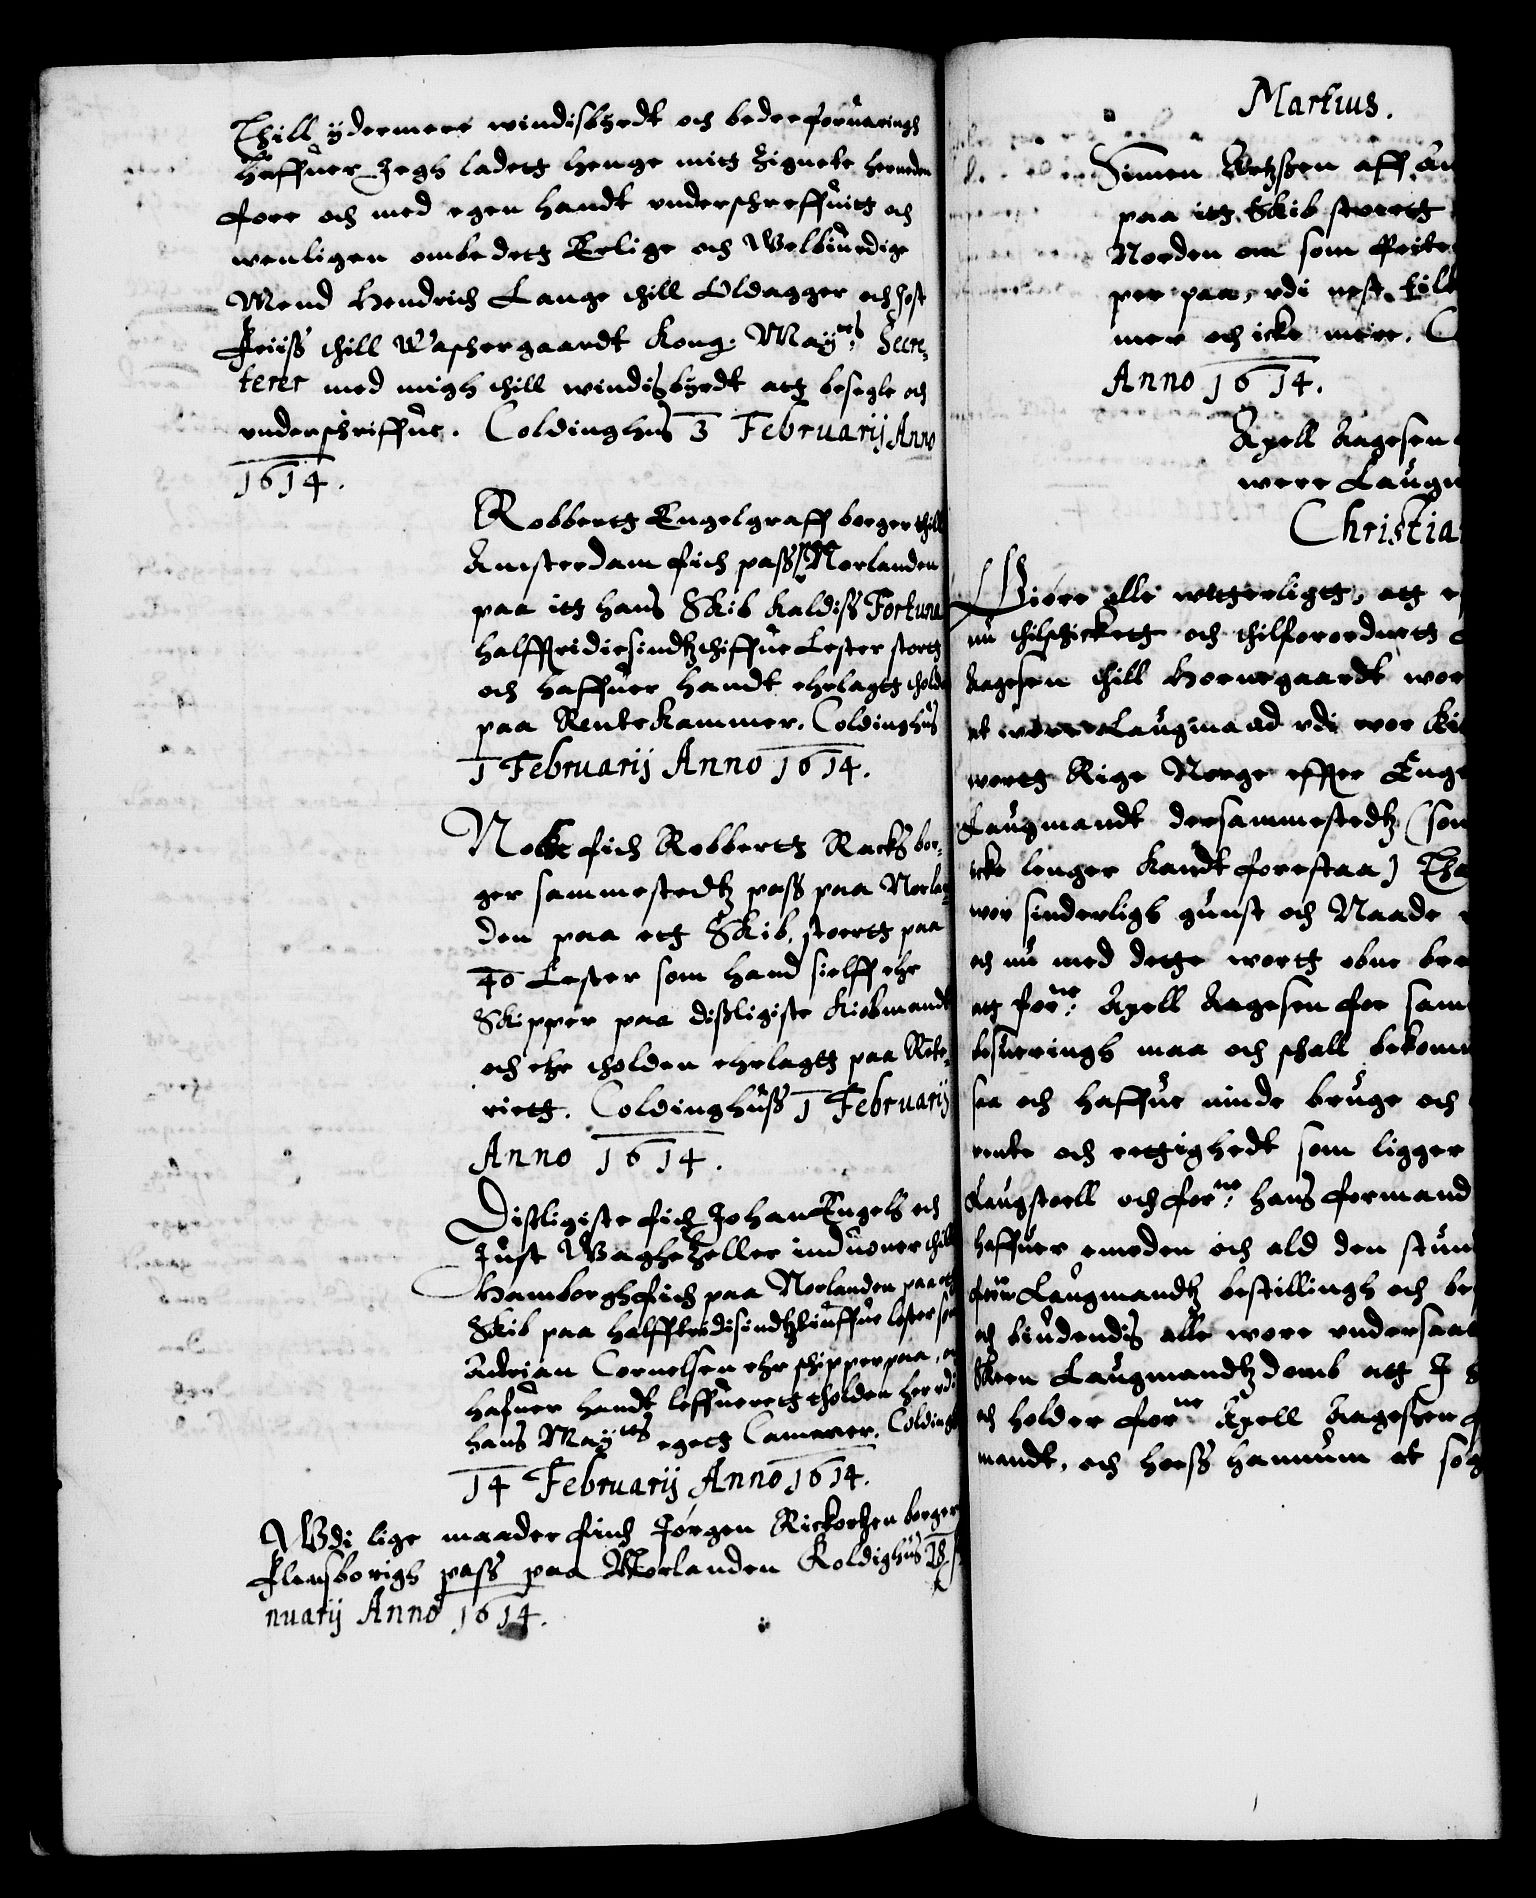 Thill ydermere windisbyrdt och bedre foruaringh
Haffuer Jegh ladett henge mitt Zignete herneden
fore och med egen handt underschreffuitt och
wenligen ombedett Erlige och Welbiurdige
Mend Hendrich Lange thill Oldagger och Jost
Friiss thill Waschergaardt Kong: Maytts Secre-
terer med migh thill windisbyrdt att besegle och
underschriffue. Coldinghus 3 Februarij Anno
1614.
Robbertt Engelgraff borger thill
Amsterdam fich pass paa Norlanden
paa itt hans Skib kaldiss Fortuna
halfftridiesindtzthiffue Lester stortt
och haffuer handt ehrlagtt tholde
paa Rentekammer. Coldinghus
1 Februarij Anno 1614.
Nock fich Robbertt Racks bor-
ger sammestedtz pass paa Norlan-
den paa ett Skib, stoertt paa
40 Lester som hand sielff ehr
Skipper paa dissligiste Kiøbmandt
och ehr tholden ehrlagtt paa Rente-
riett. Coldinghuss 1 Februarij
Anno 1614.
Dissligiste fich Johan Engels och
Just Waghe Zeller induoner thill
Hamborgh fich paa Norlanden paa ett
Skib paa halfftridisindtztiuffue lester som
Adrian Cornelsen ehr schipper paa, och
hafuer handt leffuerett tholden her udi
hans Maytts egett Cammer. Coldingh
14 Februarij Anno 1614.
Wdi lige maader finch Jørgen Rickortzen borger
Flensborigh pass paa Norlanden Koldighus 18
nuarij Anno 1614.
Martius.
Simen aff Am
paa itt Skib stoertt
Norden om som Peite
per paa, udi nest till
mer och icke mere. C
Anno 1614.
Axell Aagesen
were Laugm
Christia
Giøre alle witterligtt, att e
nu thilschickett och thilforordnett
Aagesen thill Hornegaardt wor
at were Laugmand udi wor
wortt Rige Norge effter Enge
Laugmandt dersammestedtz (som
icke lenger kandt forestaa) Tha
wor sinderligh gunst och Naade
och nu med dette wortt obne bre
att forne: Axell Aagesen for sam
besueringh maa och schall bekomm
saa och haffue niude bruge och
rente och rettighedt som ligger
Laugstoell och forne: hans formand
haffuer emeden och ald den stun
Laugmandtz bestillingh och be
och biudendis alle wore undersaa
Skeen Laugmandtz domb att I
och holder forne Axell Aagesen f
mandt, och hoess hannum at søg